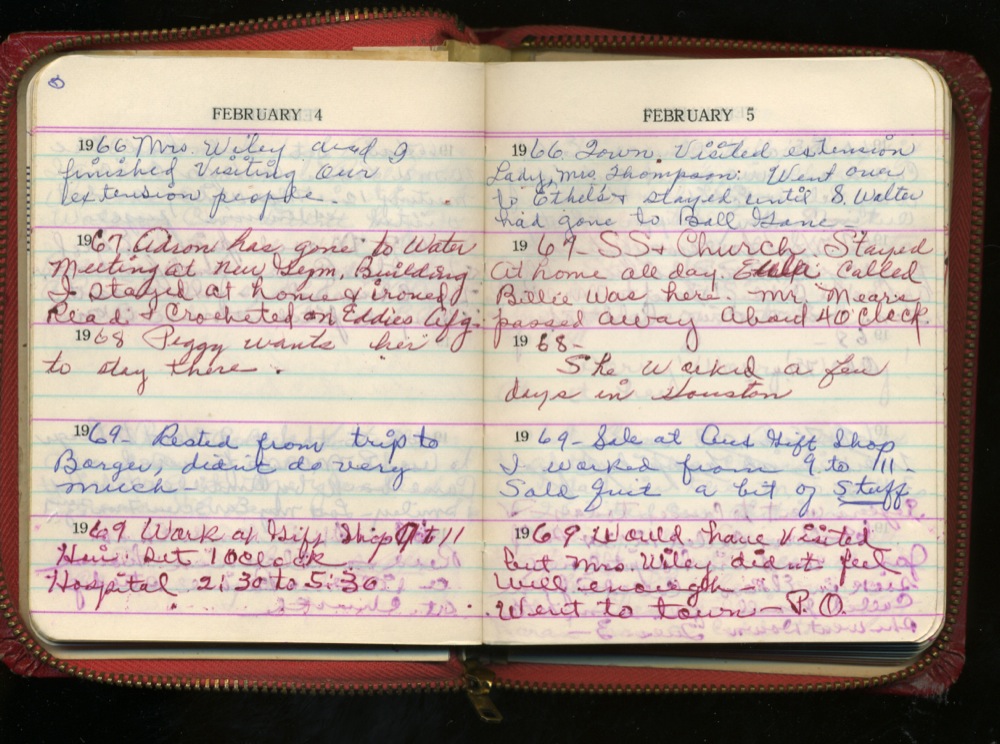 FEBRUARY 4
1966 Mrs. Wiley and I
finished Visiting our
extension people.
1967. Adson has gone to Water
Meeting at New Gym, Building
I stayed at home & ironed
Read & Crocheted on Eddies Afg.
1968 Peggy wants her
to stay there.
1969- Rested from trip to
Borger, didn't do very
much-
1969 Work at Gift Shop 9 to 11
Hair Set 1 OClock
Hospital 2:30 to 5:30
FEBRUARY 5
1966 Town. Visited extension
Lady, Mrs. Thompson. Went over
to Ethel's & stayed until S. Walter
had gone to Ball Game-
1967- SS & Church. Stayed
at home all day. Eula Called
Billie Was here. Mr. Mears
passed away about 4 O'clock.
1968-
She worked a few
days in Houston
1969- Sale at Our Gift Shop
I worked from 9 to 11-
Sold quit a bit of Stuff
1969 Would have Visited
but Mrs. Wiley didn't feel
well enough-
Went to town - P.O.